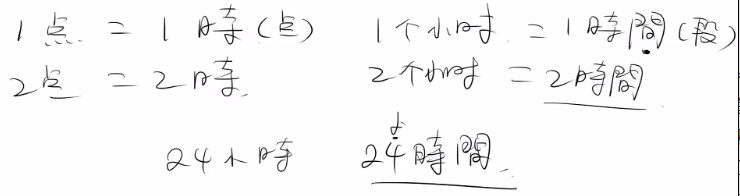 1点 = 1時(点) 1个小时 = 1時間(段)
2点 = 2時 2个小时 = 2時間
24小時 24時間